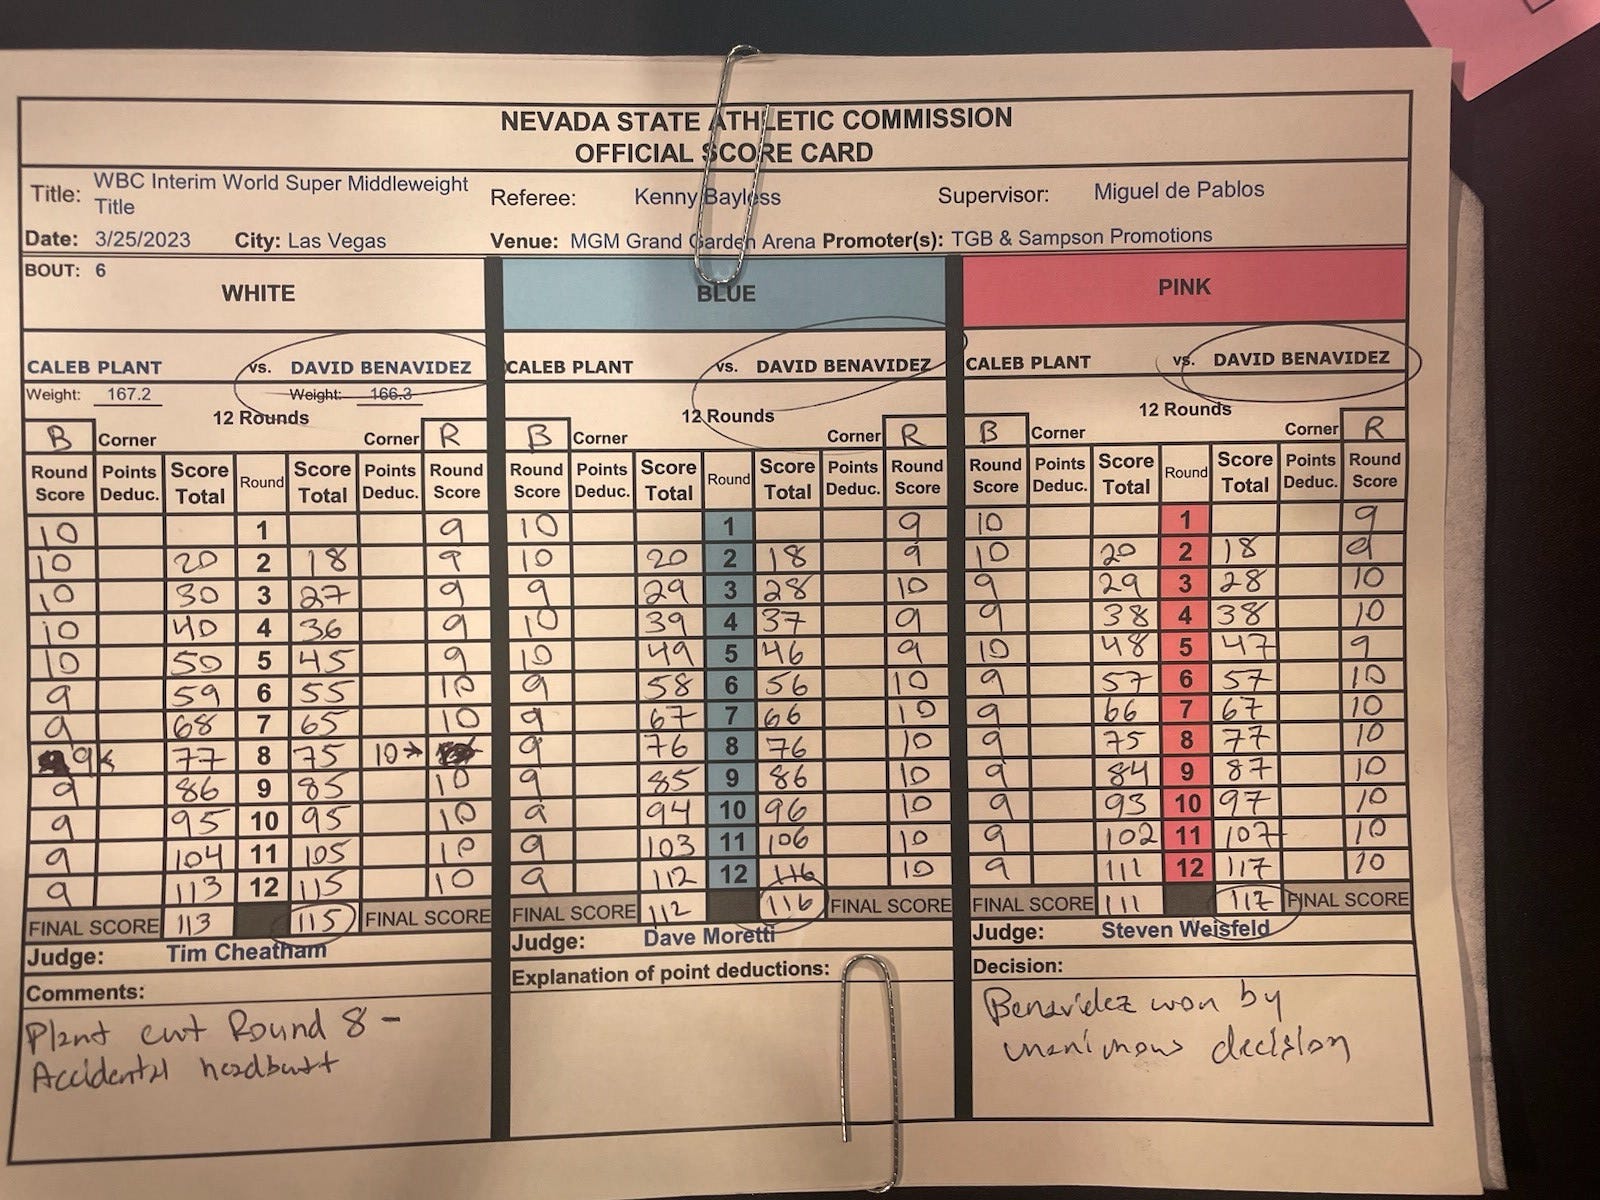 NEVADA STATE ATHLETIC COMMISSION
OFFICIAL SCORE CARD
Title: WBC Interim World Super Middleweight Title Referee: Kenny Bayless Supervisor: Miguel de Pablos
Date: 3/25/2023 City: Las Vegas Venue: MGM Grand Garden Arena Promoter(s): TGB & Sampson Promotions
BOUT: 6
WHITE BLUE PINK
CALEB PLANT vs. DAVID BENAVIDEZ CALEB PLANT vs. DAVID BENAVIDEZ CALEB PLANT vs. DAVID BENAVIDEZ
Weight: 167.2 Weight: 166.3
12 Rounds 12 Rounds 12 Rounds
B Corner Corner R B Corner Corner R B Corner Corner R
Round Points Score Round Score Points Round Round Points Score Round Score Points Round Round Points Score Round Score Points Round
Score Deduc. Total Total Deduc. Score Score Deduc. Total Total Deduc. Score Score Deduc. Total Total Deduc. Score
10 1 9 10 1 9 10 1 9
10 20 2 18 9 10 20 2 18 9 10 20 2 18 9
10 30 3 27 9 9 29 3 28 10 9 29 3 28 10
10 40 4 36 9 10 39 4 37 9 9 38 4 38 10
10 50 5 45 9 10 49 5 46 9 10 48 5 47 9
9 59 6 55 10 9 58 6 56 10 9 57 6 57 10
9 68 7 65 10 9 67 7 66 10 9 66 7 67 10
9 77 8 75 10 9 76 8 76 10 9 75 8 77 10
9 86 9 85 10 9 85 9 86 10 9 84 9 87 10
9 95 10 95 10 9 94 10 96 10 9 93 10 97 10
9 104 11 105 10 9 103 11 106 10 9 102 11 107 10
9 113 12 115 10 9 112 12 116 10 9 111 12 117 10
FINAL SCORE 113 115 FINAL SCORE FINAL SCORE 112 116 FINAL SCORE FINAL SCORE 111 117 FINAL SCORE
Judge: Tim Cheatham Judge: Dave Moretti Judge: Steven Weisfeld
Comments: Explanation of point deductions: Decision:
Plant cut Round 8 -
Accidental headbutt
Benavidez won by
unanimous decision